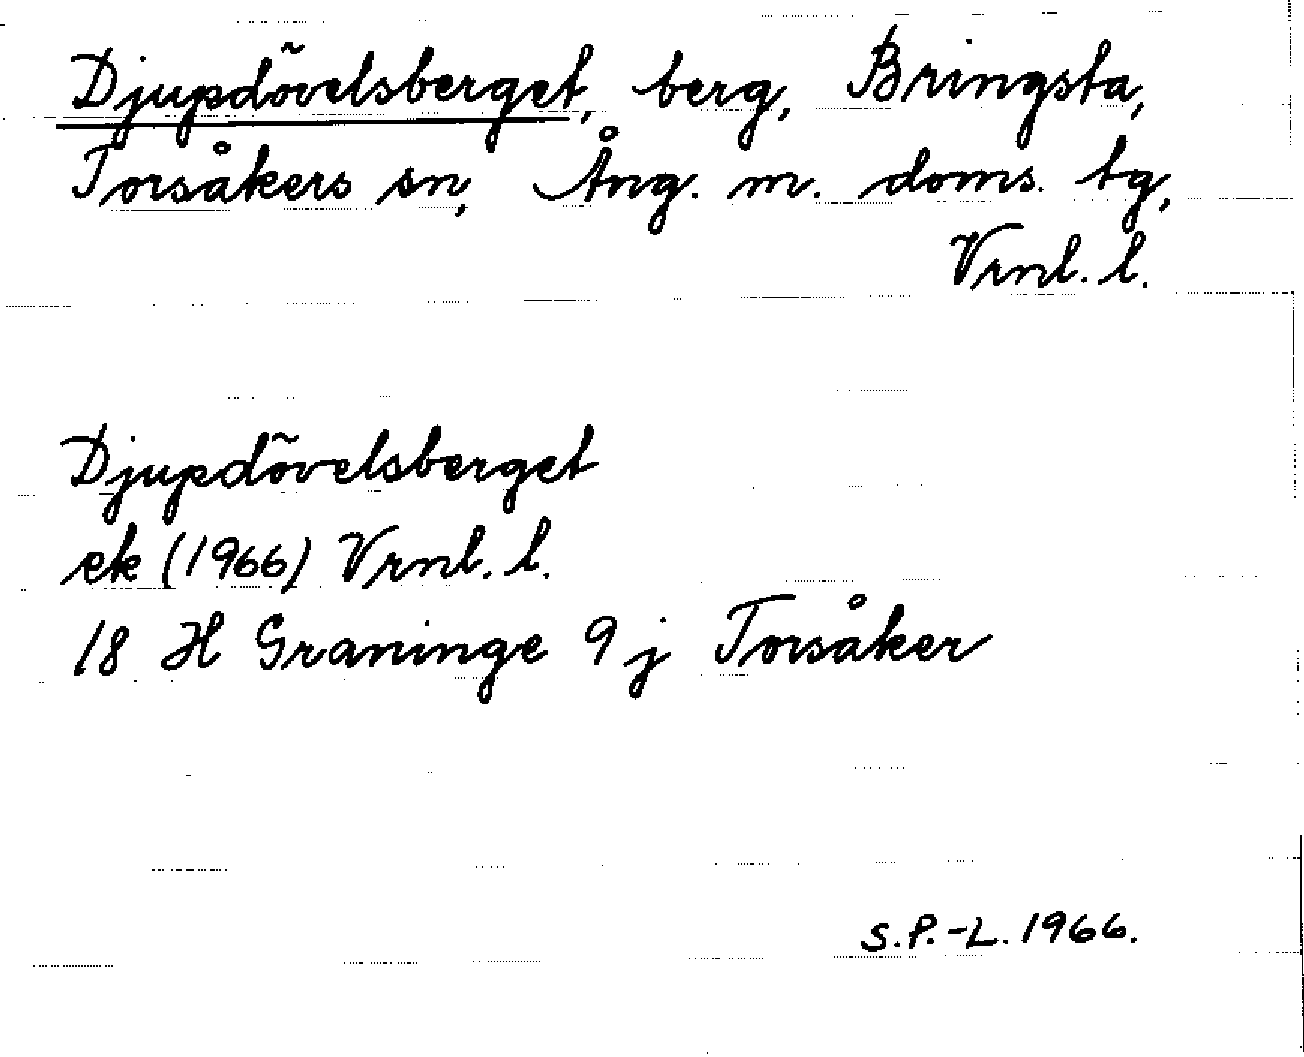 Djupdövelsberget, berg, Bringsta,
Torsåkers sn, Ång. m. doms. tg,
Vrnl. l.
Djupdövelsberget
ek (1966) Vrnl. l.
18 H Graninge 9 j Torsåker
S.P.-L. 1966.